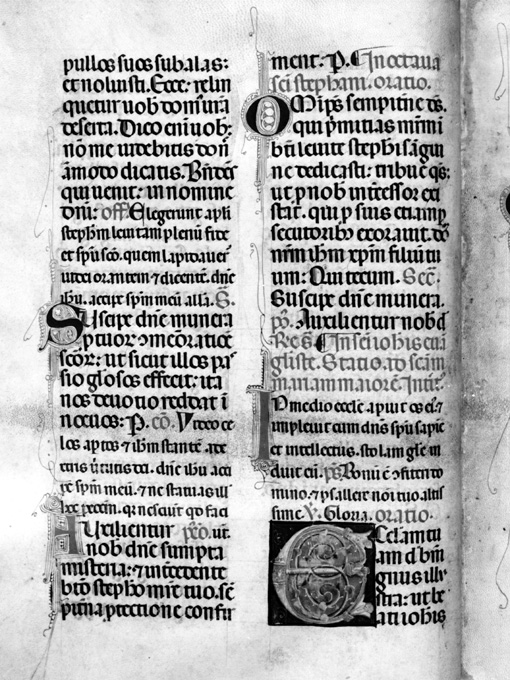 pullos suos sub alas:
et noluisti. Ecce: relin
quetur uob dom̄ ur̄a
deserta. Dico eni uob:
nō me uidebitis donˉ
amodo dicatis. Bn̄dcs̄
qui uenit: in nomine
dn̄i: off Elegerunt apłi
stephm̄ leuitam plenū fide
et spū scō. quem lapidauer̄
iudei orantem ⁊ dicentē. dn̄e
ih̄u. accipe spm̄ meū alla. S.
Suscipe dn̄e munera
p tuoꝝ ↄmeōratiōe
scōꝝ: ut sicut illos pas
sio gl̄osos effecit: ita
nos deuotio reddat i
nocuos: P. cō. Video ce
los aptos ⁊ ih̄m stantē adex
tris uirtutis dei. dn̄e ih̄u acci
pe spm̄ meū. ⁊ ne statuas ill'
hc̄ pecctm̄. qr nesciūt qd faci
Auxilientur pō. ut.
nob dn̄e sumpta
misteria: ⁊ intcedente
btō stephō mr̄e tuo. sē
pitna ptectione confir
ment. P. In octaua
sci stephani. oratio.
OMips̄ sempitn̄e ds̄.
qui pmitias mr̄m i
bti leuite stephi sāgui
ne dedicasti: tribue qs̄:
ut p nob intcessor exi
stat. qui p suis etiam p
secutoribꝰ exorauit. dō
nr̄m ih̄m xpm̄ filium tu
um: Qui tecum. Sec̄.
Suscipe dn̄e munera.
pō. Auxilientur nob d
Req̄. In sci iohis euā
gliste. Statio ad scām
mariam maiorē. Intr̄.
In medio eccl̄e apuit os ei: ⁊
impleuit eum dn̄s spū sapiē
et intellectus. stolam gl̄e in
duit eū. ps Bonū ē ↄfiteri do
mino. ⁊ psallere noi tuo altis
sime V. Gloria. oratio.
Ecclam tu
am dn̄e bni
gnus illu
stra: ut be
ati iohis